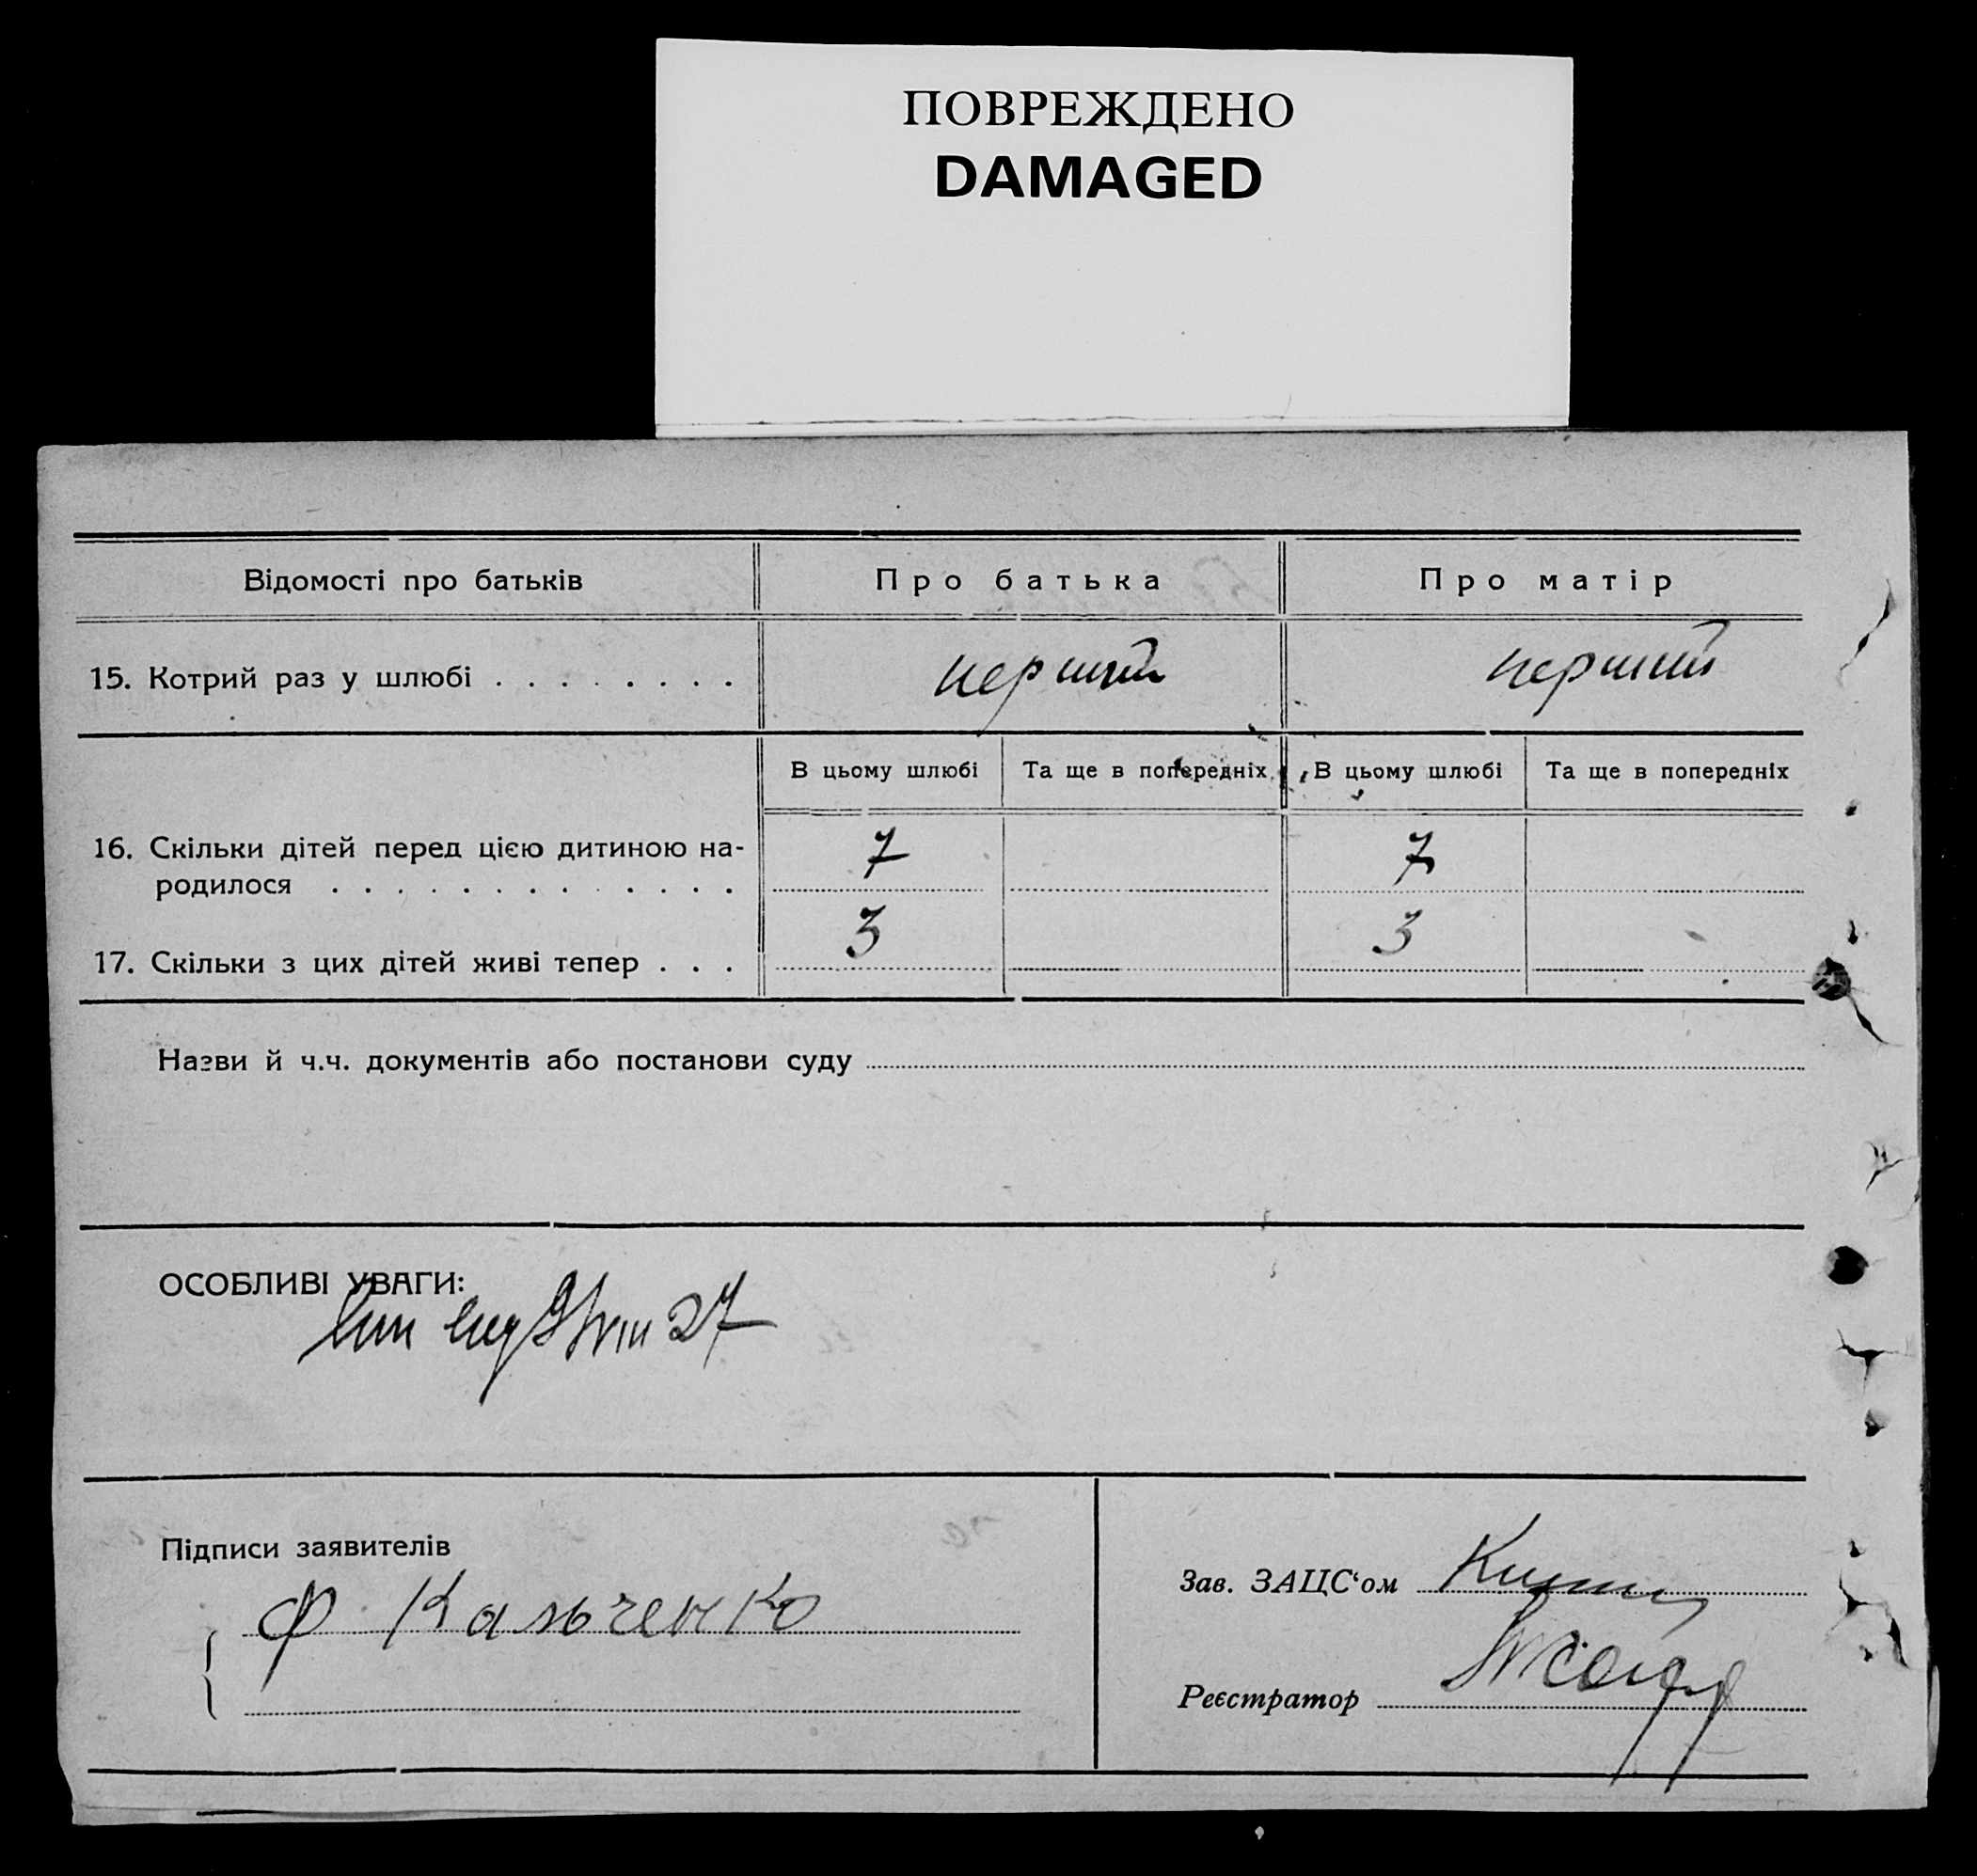 ПОВРЕЖДЕНО
DAMAGED
Відомості про батьків
Про батька
Про матір
15. Котрий раз у шлюбі . . . . . . . .
перший
перший
В цьому шлюбі
Та ще в попередніх
В цьому шлюбі
Та ще в попередніх
16. Скільки дітей перед цією дитиною на-
родилося . . . . . . . . . . . . .
7
7
17. Скільки з цих дітей живі тепер . . .
3
3
Назви й ч.ч. документів або постанови суду
ОСОБЛИВІ УВАГИ:
27
Підписи заявителів
Ф Кальченко
Зав. ЗАЦС‘ом
Реєстратор